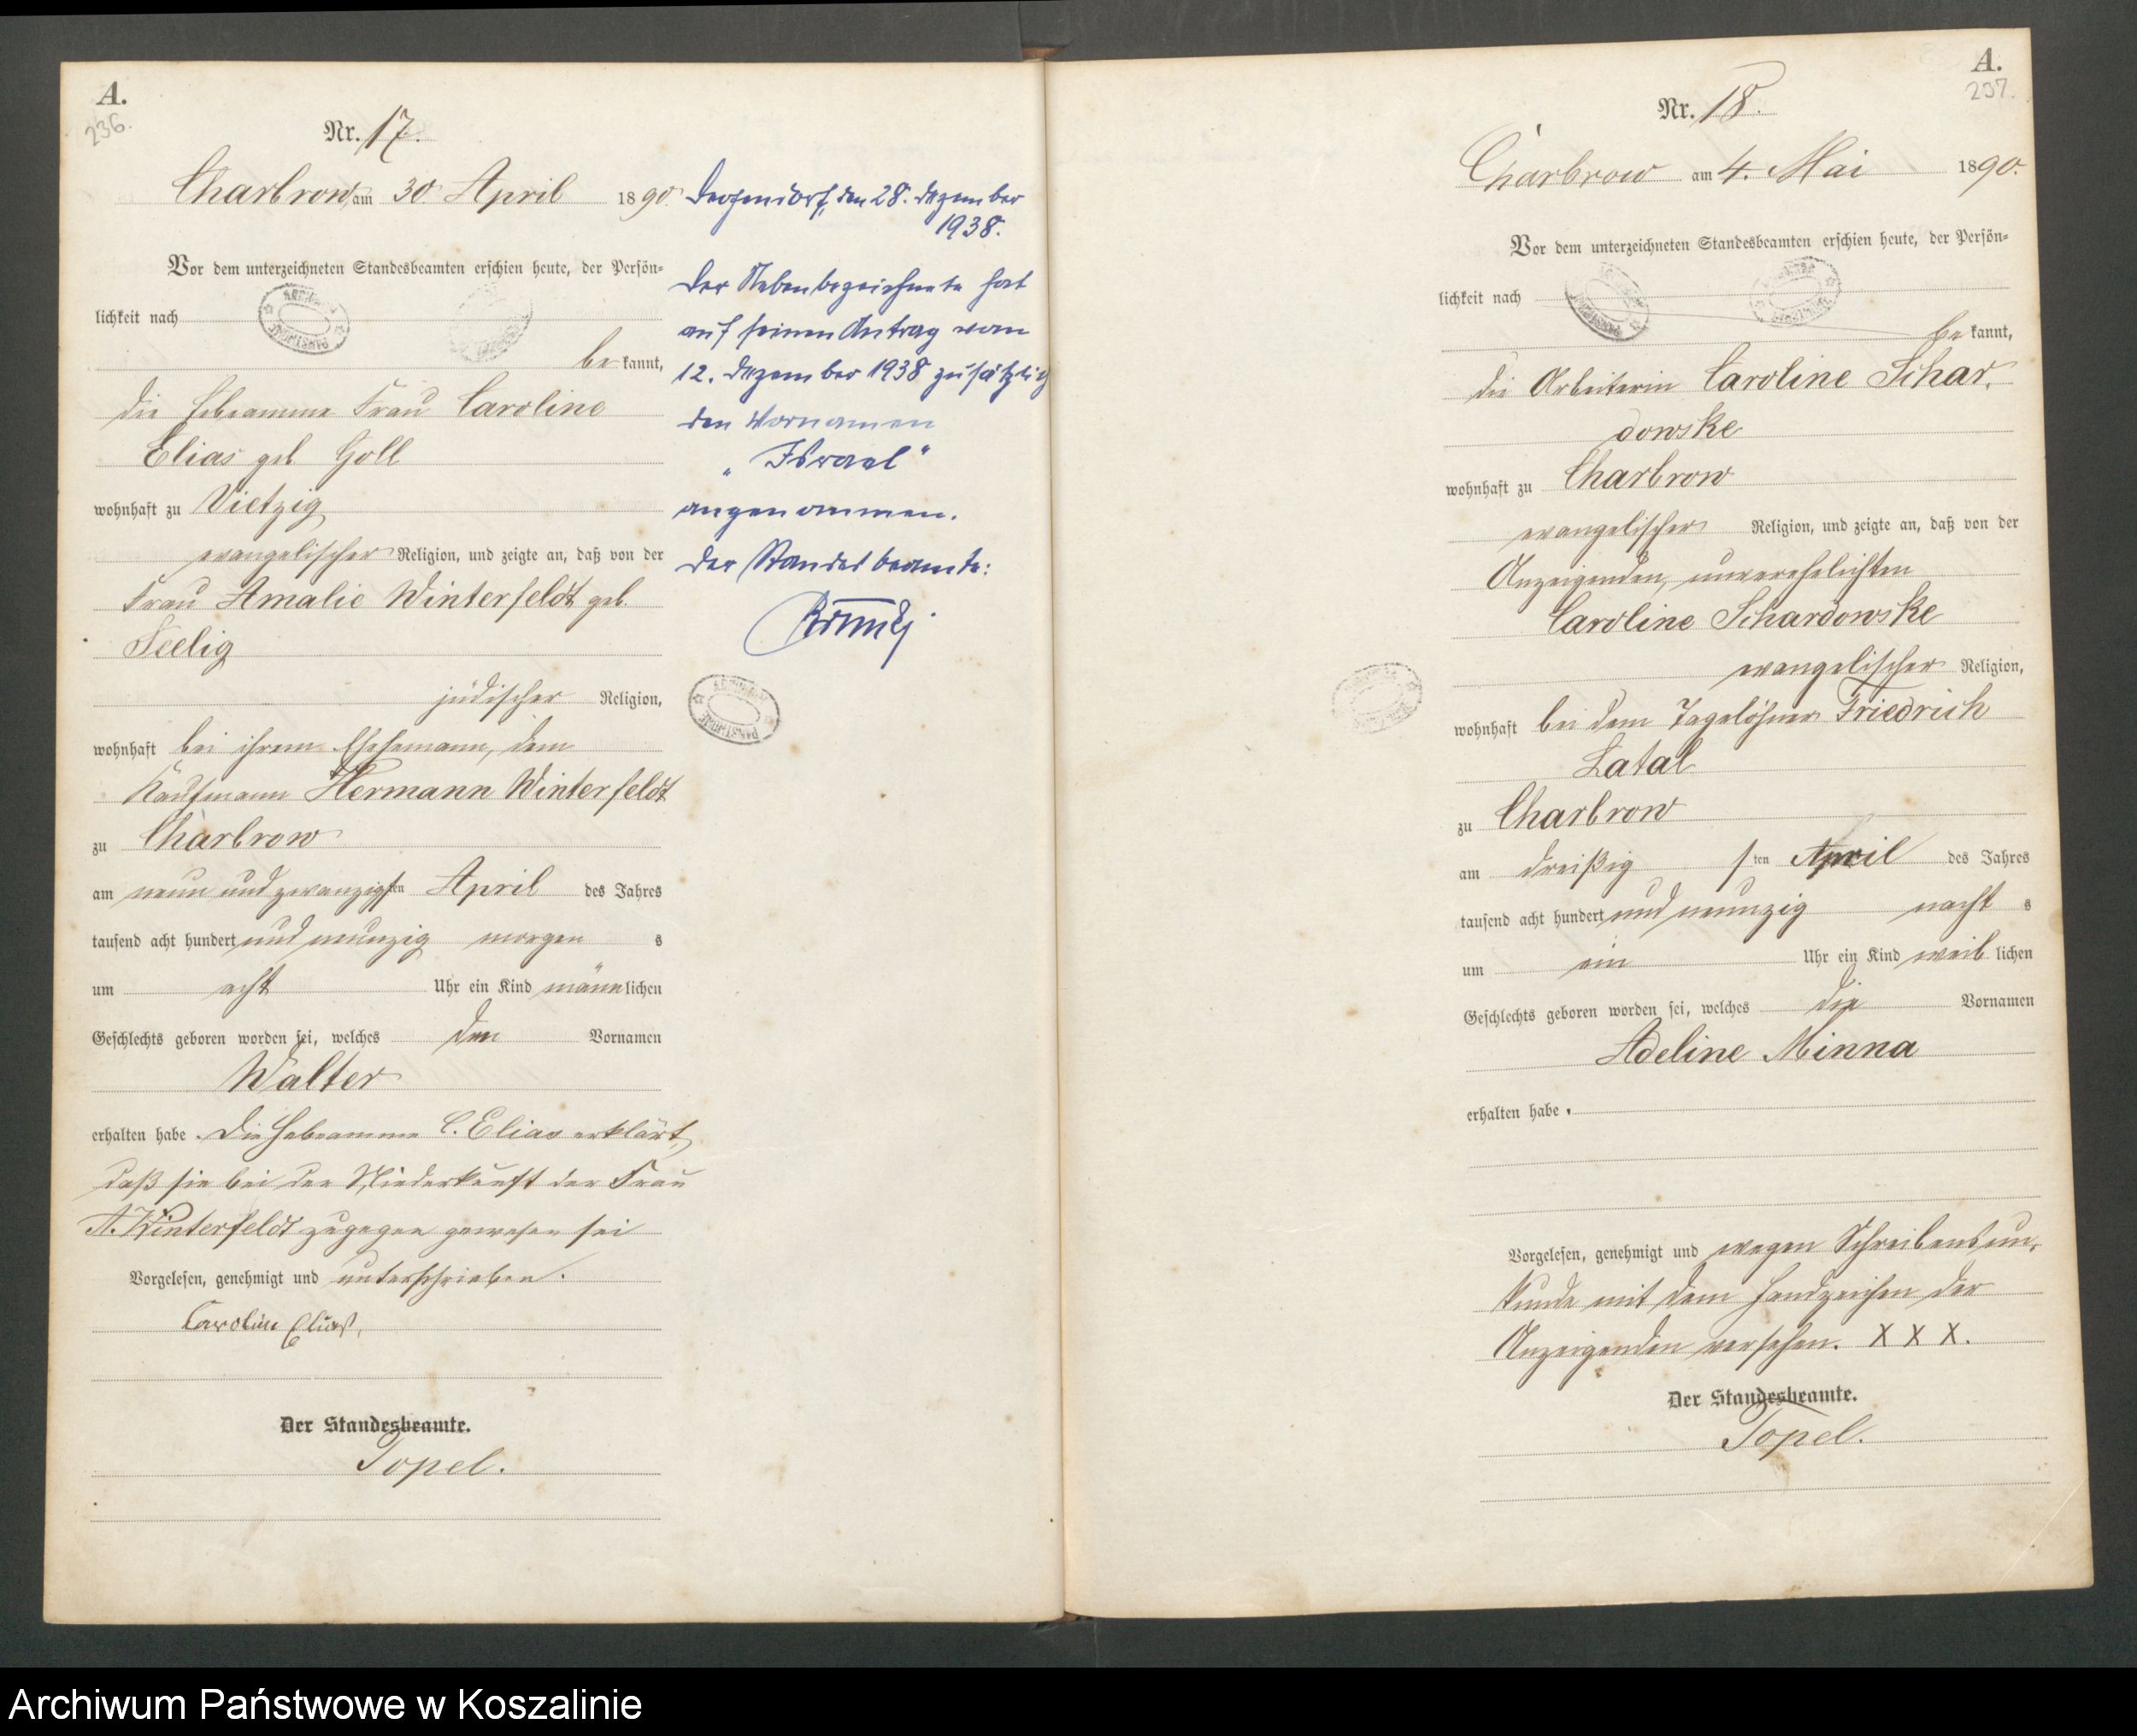 A.
236.
Nr. 17.
Charbrow am 30 April 1890.
Vor dem unterzeichneten Standesbeamten erschien heute, der Persön=
lichkeit nach
be kannt,
die Hebeamme Frau Caroline
Elias geb. Goll
wohnhaft zu Vietzig
evangelischer Religion, und zeigte an, daß von der
Frau Amalie Winterfeldt geb.
Seelig
jüdischer Religion,
wohnhaft bei ihrem Ehehemann, dem
Kaufmann Hermann Winterfeldt
zu Charbrow
am neun und zwanzigsten April des Jahres
tausend acht hundert und neunzig morgens
um acht Uhr ein Kind männlichen
Geschlechts geboren worden sei, welches den Vornamen
Walter
erhalten habe. Die Hebeamme C. Elias erklärt,
daß sie bei der Niederkunft der Frau
A. Winterfeldt zugegen gewesen sei
Vorgelesen, genehmigt und unterschrieben.
Caroline Elias,
Der Standesbeamte.
Topel.
den 28. Dezember
1938.
Der Nebenbezeichnete hat
auf seinen Antrag vom
12. Dezember 1938 zusätzlich
den Vornamen
"Israel"
angenommen.
Der Standesbeamte:
A.
237.
Nr. 18.
Charbrow am 4. Mai 1890.
Vor dem unterzeichneten Standesbeamten erschien heute, der Persön=
lichkeit nach
be kannt,
die Arbeiterin Caroline Schar,
dowske
wohnhaft zu Charbrow
evangelischer Religion, und zeigte an, daß von der
Anzeigenden, unverehelichten
Caroline Schardowske
evangelischer Religion,
wohnhaft bei dem Tagelöhner Friedrich
Latal
zu Charbrow
am dreißigsten April des Jahres
tausend acht hundert und neunzig nachts
um ein Uhr ein Kind weiblichen
Geschlechts geboren worden sei, welches die Vornamen
Adeline Minna
erhalten habe.
Vorgelesen, genehmigt und wegen Schreibensun,
kunde mit dem Handzeichen der
Anzeigenden versehen. X X X.
Der Standesbeamte.
Topel.
Archiwum Państwowe w Koszalinie